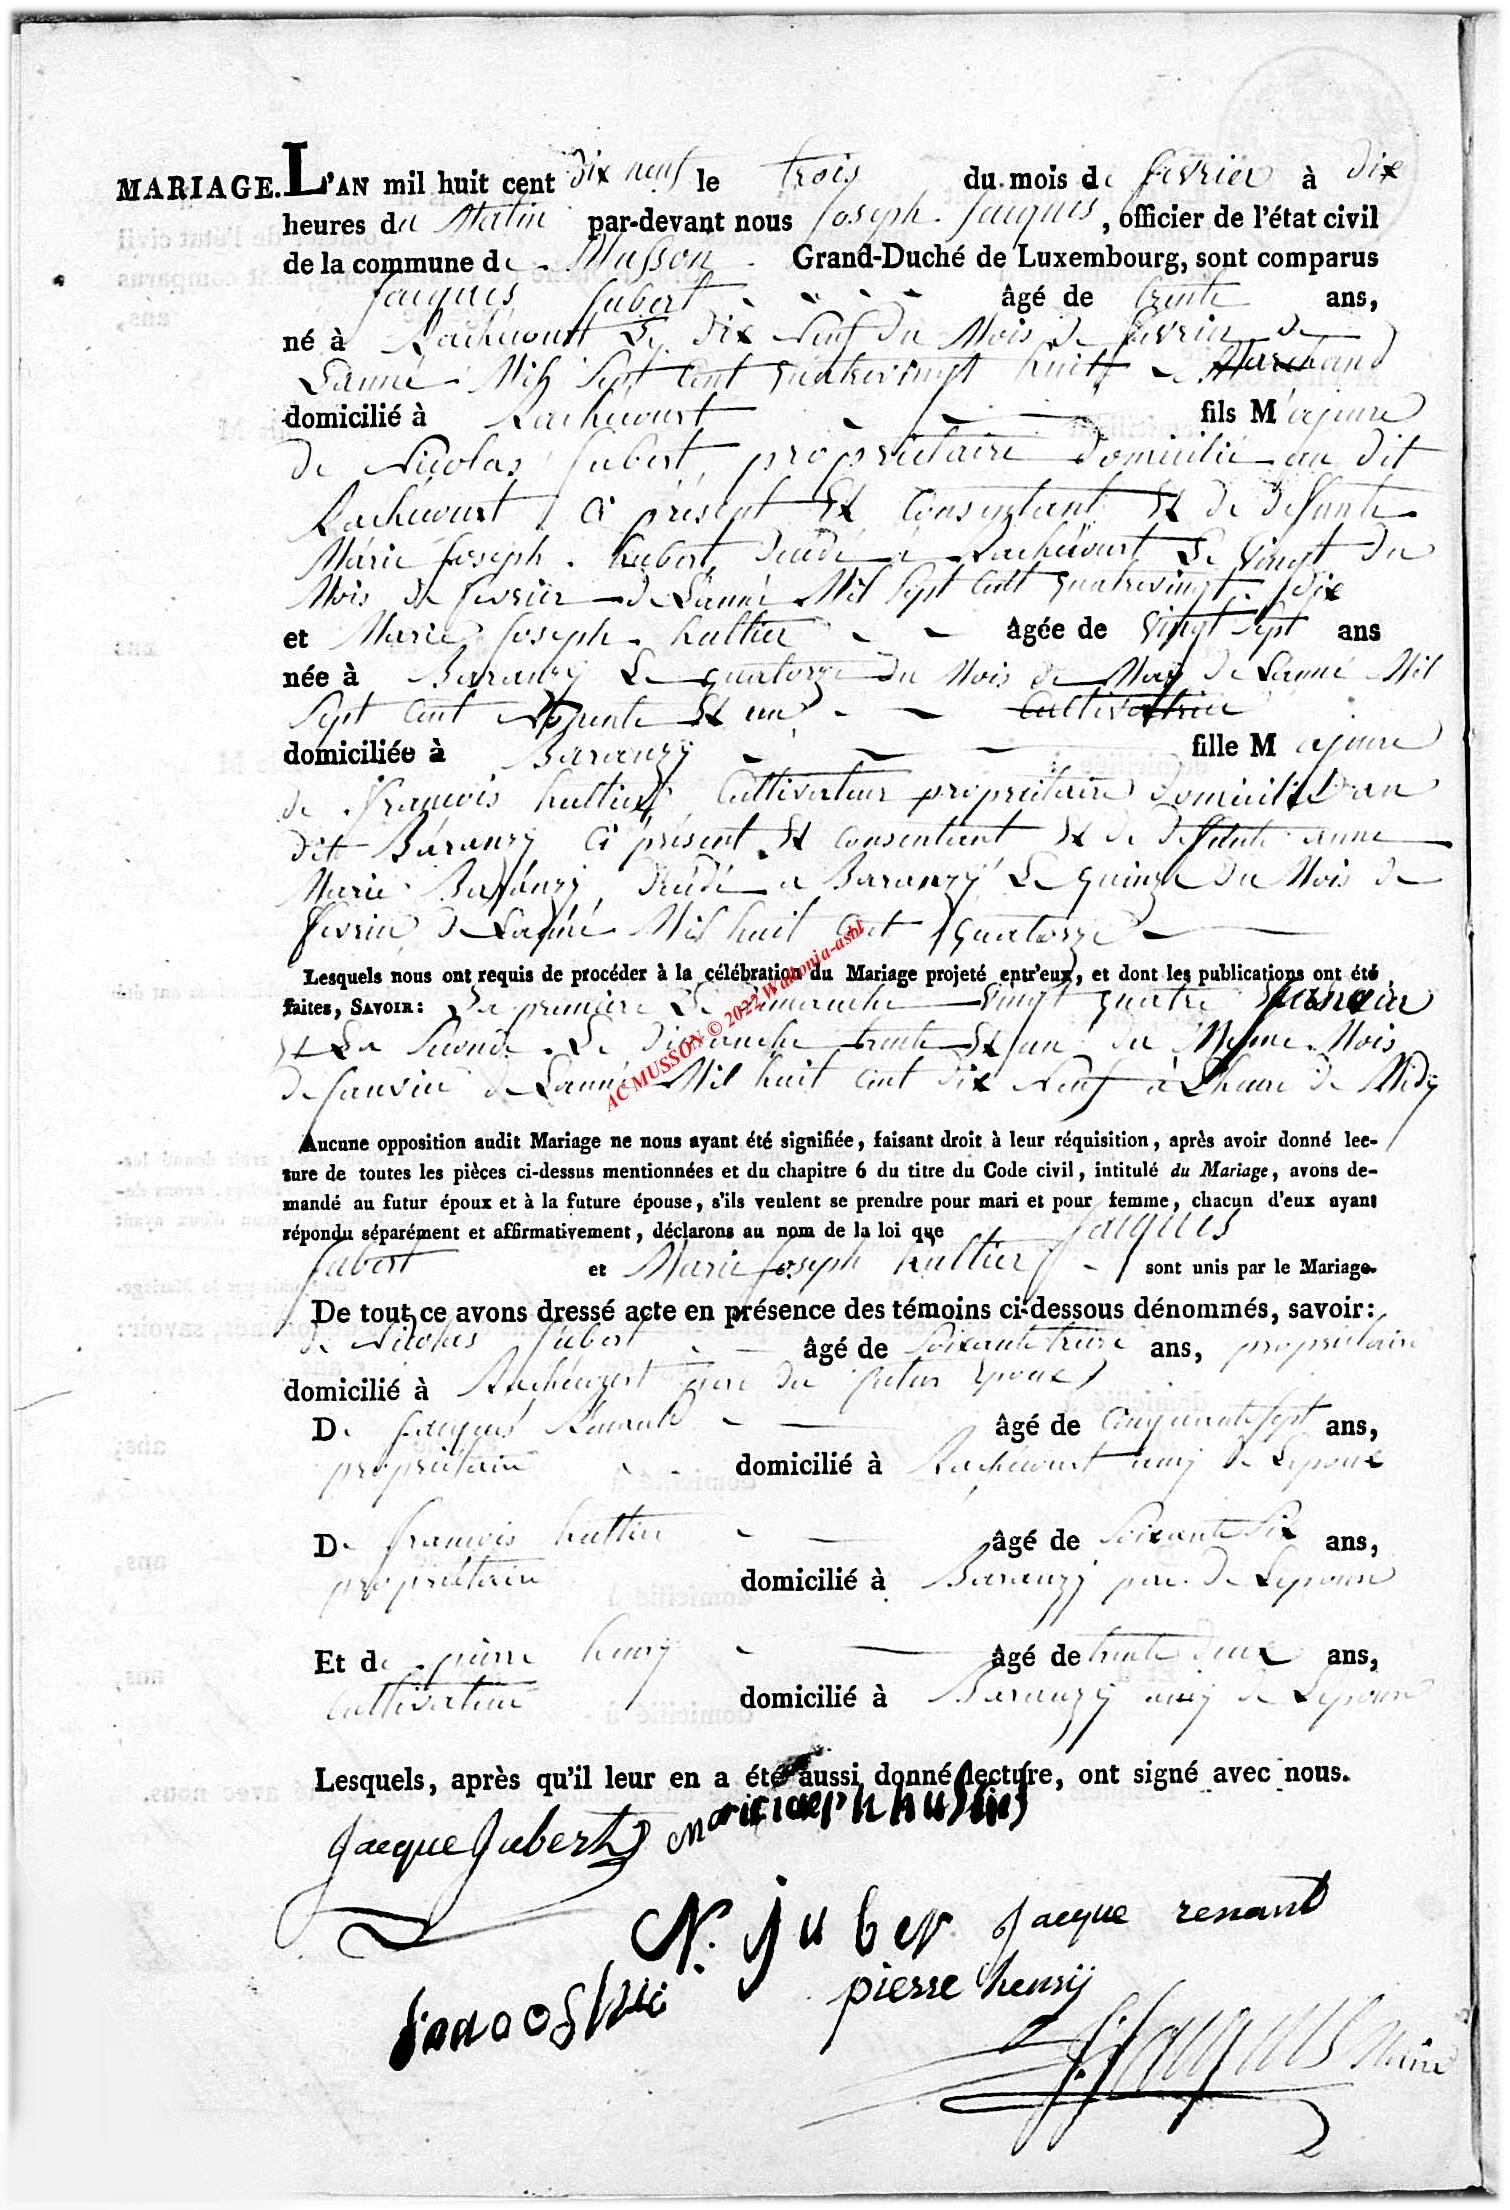 MARIAGE. L'AN mil huit cent dix neuf le trois du mois de fevrier à dix
heures du Matin par-devant nous Joseph Jacques, officier de l'état civil
de la commune de Musson Grand-Duché de Luxembourg, sont comparus
Jacques Jubert âgé de trente ans,
né à Rachecourt Le dix Neuf du Mois de fevrier de
Lanné Mil Sept Cent quatrevingt huit Marchand
domicilié à Rachecourt fils Majeure
de Nicolas Jubert propriétaire domicilié au dit
Rachécourt Ci présent Et Consentant Et de deffunte
Marie Joseph hubert décédé à Rachécourt Le Vingt du
Mois de fevrier de Lanné Mil Sept Cent quatrevingt dix
et Marie Joseph husltin âgée de Vingt Sept ans
née à Baranzÿ Le quatorze du Mois de Maÿ de Lanné Mil
Sept Cent Et un Cultivatrice
domiciliée à Baranzÿ fille Majeure
de francois Cultivateur propriétaire domicilié au
dit Baranzÿ Ci présent Et consentant Et de deffunte anne
Marie décédé a Baranzÿ Le quinze du Mois de
fevrier de Lanné Mil huit Cent quatorze
Lesquels nous ont requis de procéder à la célébration du Mariage projeté entr'eux, et dont les publications ont été
faites, SAVOIR: La premiere Le dimanche Vingt quatre Janvier
Et La Seconde Le dimanche trente Et un du Mesme Mois
de Janvier de Lanné Mil huit Cent dix Neuf à Lheure de Midÿ
Aucune opposition audit Mariage ne nous ayant été signifiée, faisant droit à leur réquisition, après avoir donné lec-
ture de toutes les pièces ci-dessus mentionnées et du chapitre 6 du titre du Code civil, intitulé du Mariage, avons de-
mandé au futur époux et à la future épouse, s'ils veulent se prendre pour mari et pour femme, chacun d'eux ayant
répondu séparément et affirmativement, déclarons au nom de la loi que Jacques
Jubert et Marie Joseph sont unis par le Mariage.
De tout ce avons dressé acte en présence des témoins ci-dessous dénommés, savoir:
de Nicolas Jubert âgé de Soixante treize ans, propriétaire
domicilié à Rachécourt pere du futur Epoux
De Jacques Renauld âgé de Cinquante Sept ans,
propriétaire domicilié à Rachécourt amÿ de Lepoux
De francois âgé de Soixante Six ans,
propriétaire domicilié à Baranzÿ pere de Lepouse
Et de pierre henrÿ âgé de trente deux ans,
Cultivateur domicilié à Baranzÿ amÿ de Lepouse
Lesquels, après qu'il leur en a été aussi donné lecture, ont signé avec nous.
Jacque Jubert
N. juber Jacque renauld
pierre henrÿ
J. Jacques Maire
AC MUSSON © 2022 Wallonia-asbl